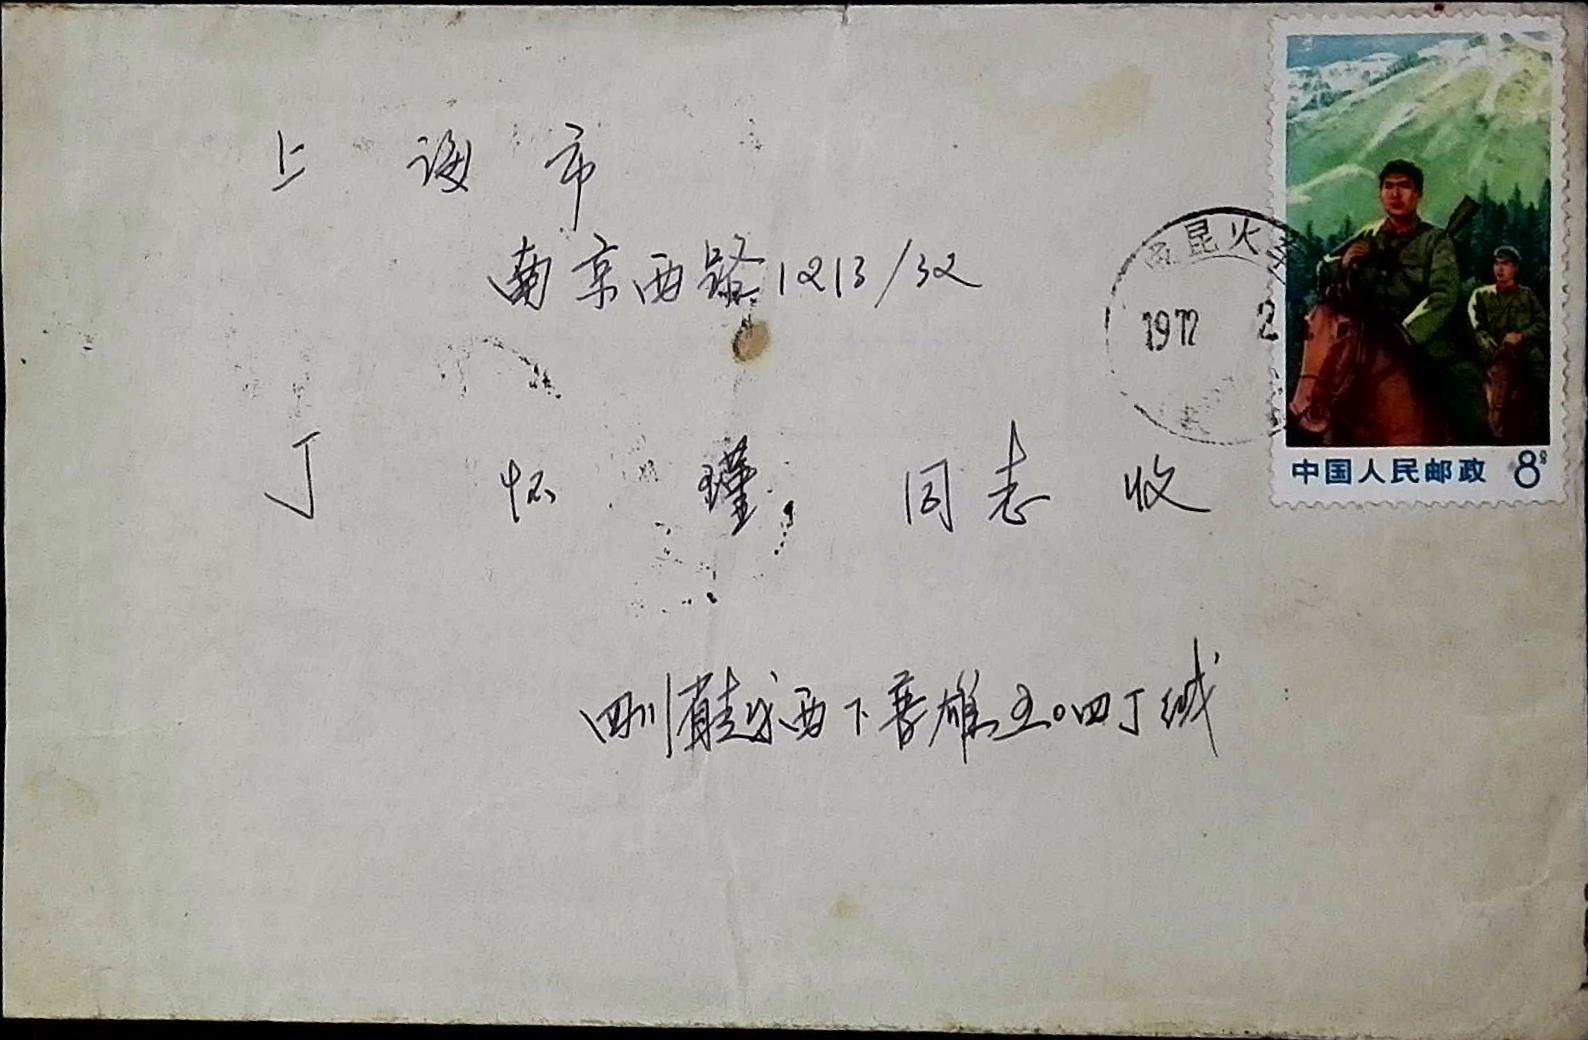 上海市
南京西路1213/32
西昆火
1972 2
中国人民邮政 8分
丁怀瑾同志收
四川省越西下普雄五〇四丁缄